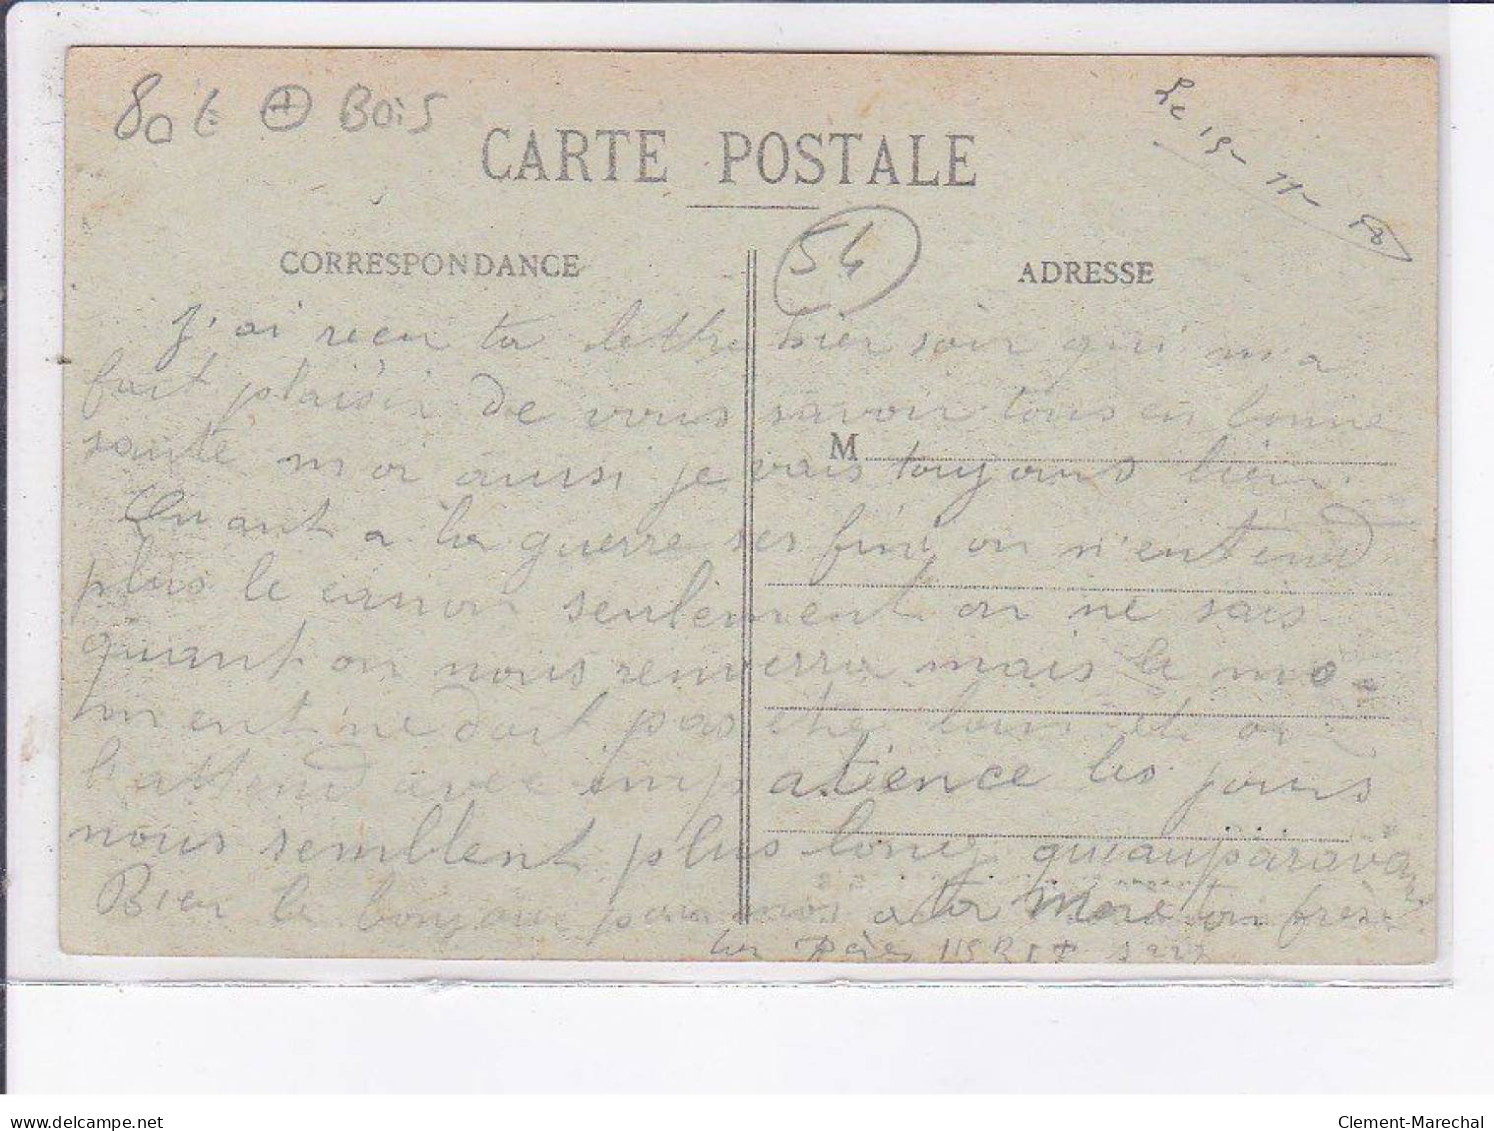 80 € + Bois
Le 15-11-18
CARTE POSTALE
54
CORRESPONDANCE
ADRESSE
J'ai recu ta lettre hier soir qui m'a
fait plaisir de vous savoir tous en bonne
M
santé moi aussi je vais toujours bien.
Quant a la guerre ses fini on n'entend
plus le canon seulement on ne sais
quant on nous renverra mais le mo-
ment ne doit pas etre loin et on
l'attend avec impatience les jours
nous semblent plus long qu'auparavant
Bien le bonjour pour moi a ta Mere ton frère
ton Père